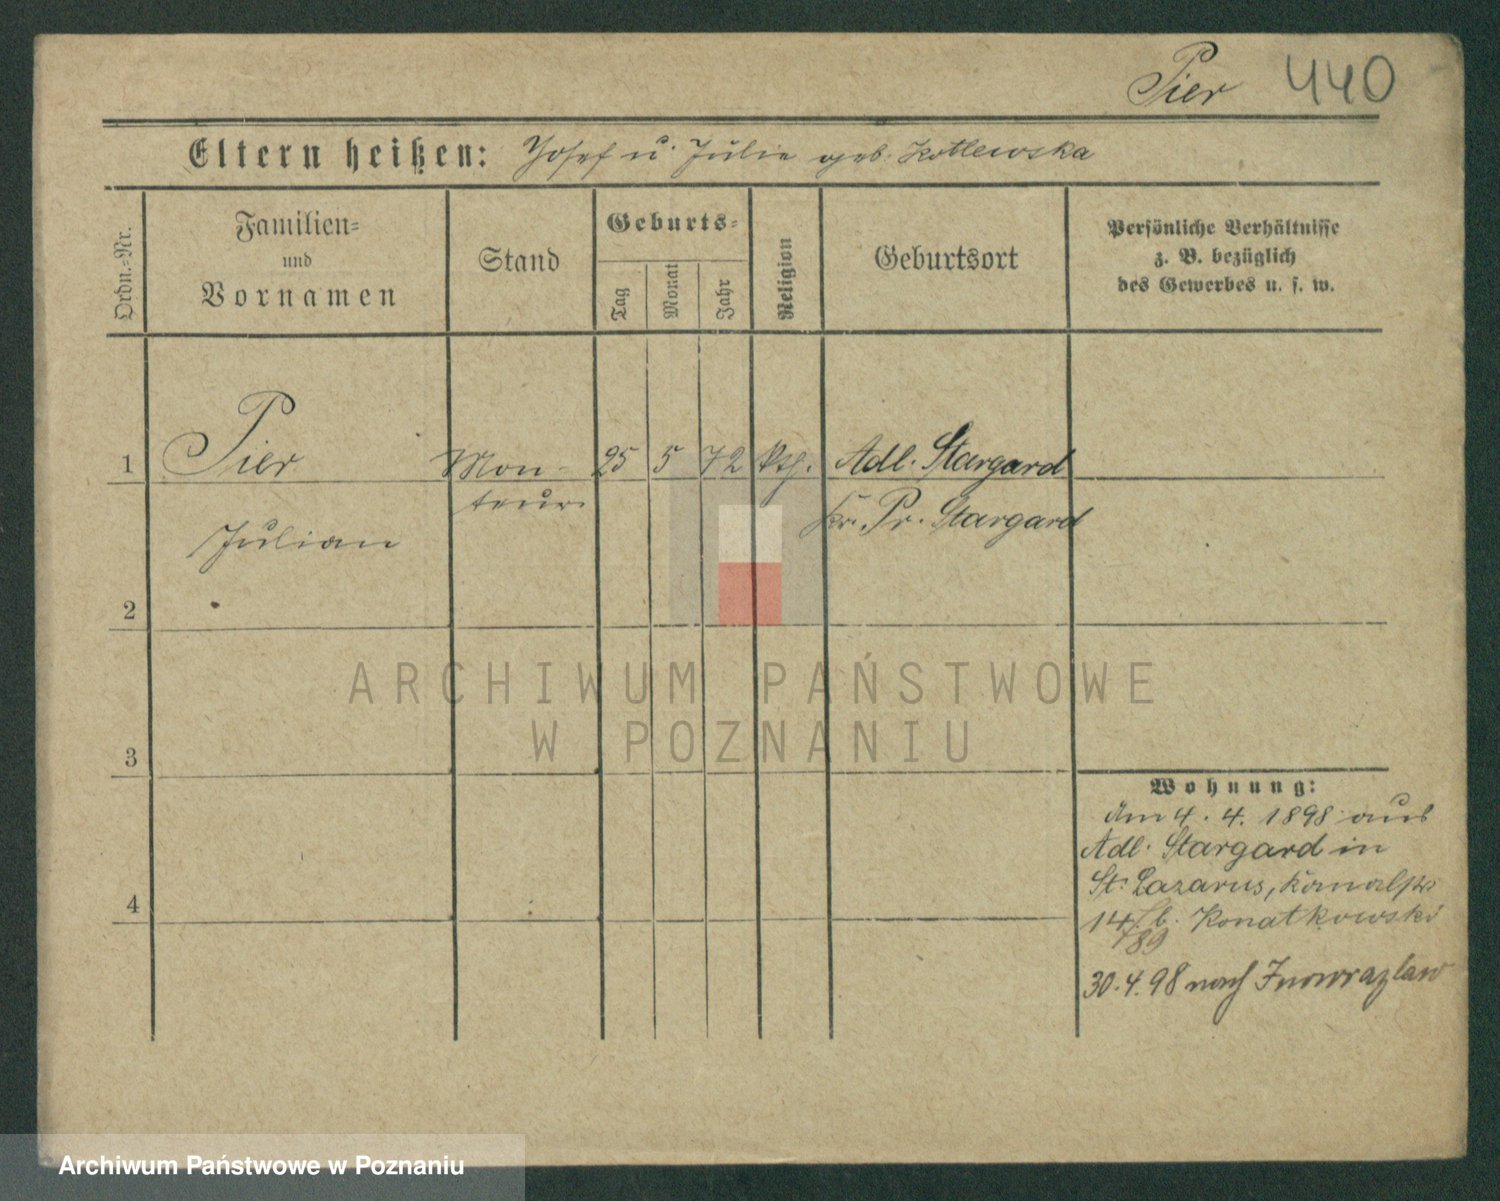 Pier 440
Eltern heißen: Josef u. Julie geb. Kotlewska
Ordn.-Nr.
Familien-
und
Vornamen
Stand
Geburts-
Tag
Monat
Jahr
Religion
Geburtsort
Persönliche Verhältnisse
z. B. bezüglich
des Gewerbes u. s. w.
1 Pier Mon- 25 5 72 kth. Adl. Stargard
teur Kr. Pr. Stargard
Julian
2
3
4
Wohnung:
Am 4. 4. 1898 aus
Adl. Stargard in
St. Lazarus, Kanalstr
14 b. Konatkowski
/89
30.4.98 nach Inowrazlaw
ARCHIWUM PAŃSTWOWE
W POZNANIU
Archiwum Państwowe w Poznaniu